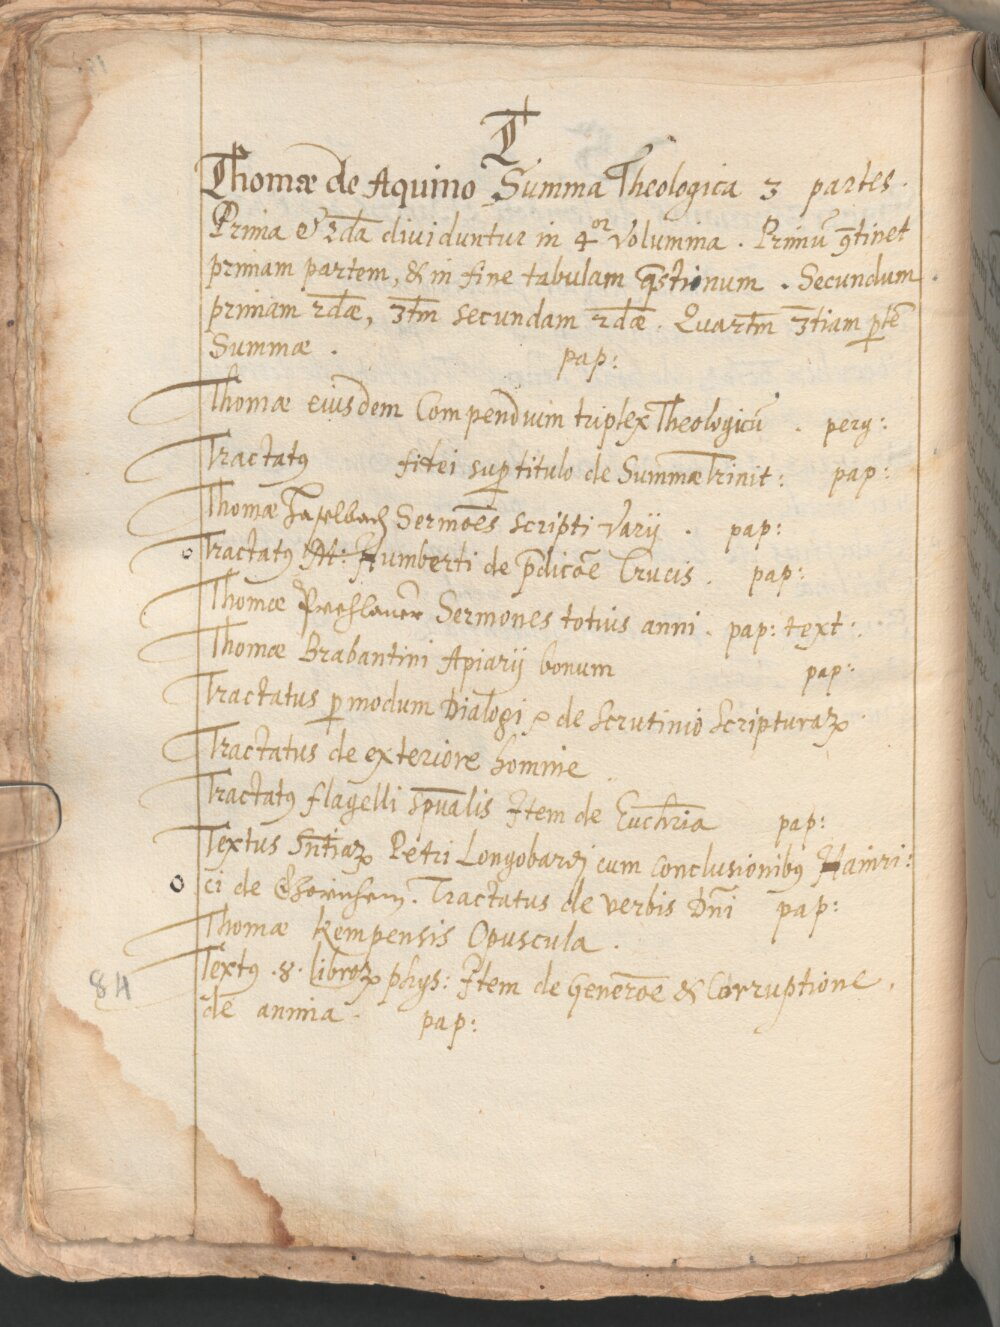 T
Thomæ de Aquino Summa Theologica 3 partes.
Prima & 2da diuiduntur in 4or Volumina. Primū 9tinet
primam partem, & in fine tabulam q̄stionum. Secundum
primam 2dæ, 3tm secundam 2dæ. Quartm 3tiam ptē
Summæ. pap:
Thomæ eiusdem Compendium triplex Theologicū. perg:
Tractatus super titulo de Summæ Trinit: pap:
Thomæ Haselbach Sermões scripti varij. pap:
Tractatus M: Humberti de p̄dicõe Crucis. pap:
Thomæ Sermones totius anni. pap: text:
Thomæ Brabantini Apiarij bonum pap:
Tractatus p modum Dialogi de Scrutinio Scripturaꝝ
Tractatus de exteriore homine
Tractatus flagelli spūalis Item de Euchria pap:
Textus Sn̄tiaꝝ Petri Longobardj cum conclusionibus Hainri:
ci de . Tractatus de verbis Dn̄i pap:
Thomæ Kempensis Opuscula.
Textus .8. libroꝝ phys: Item de Generõe & Corruptione,
de anima. pap:
84